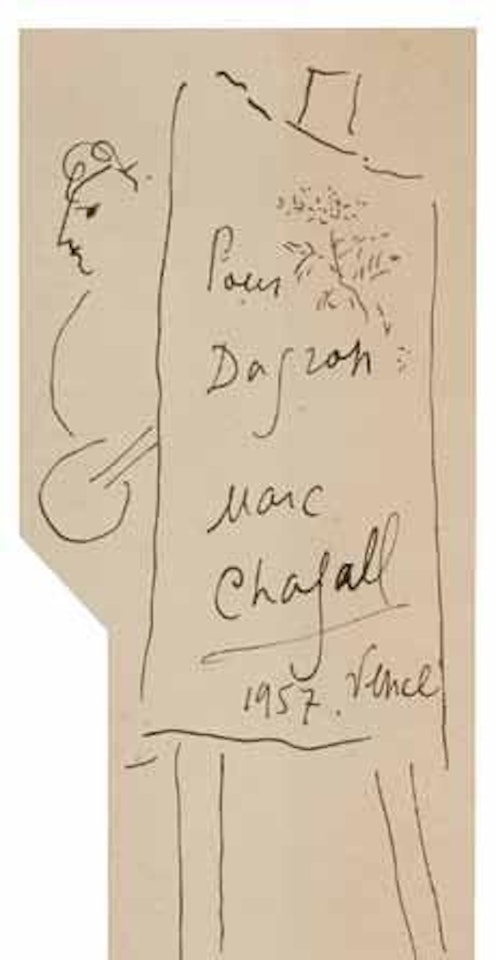 Pour
Dagron
Marc
Chagall
1957. Vence